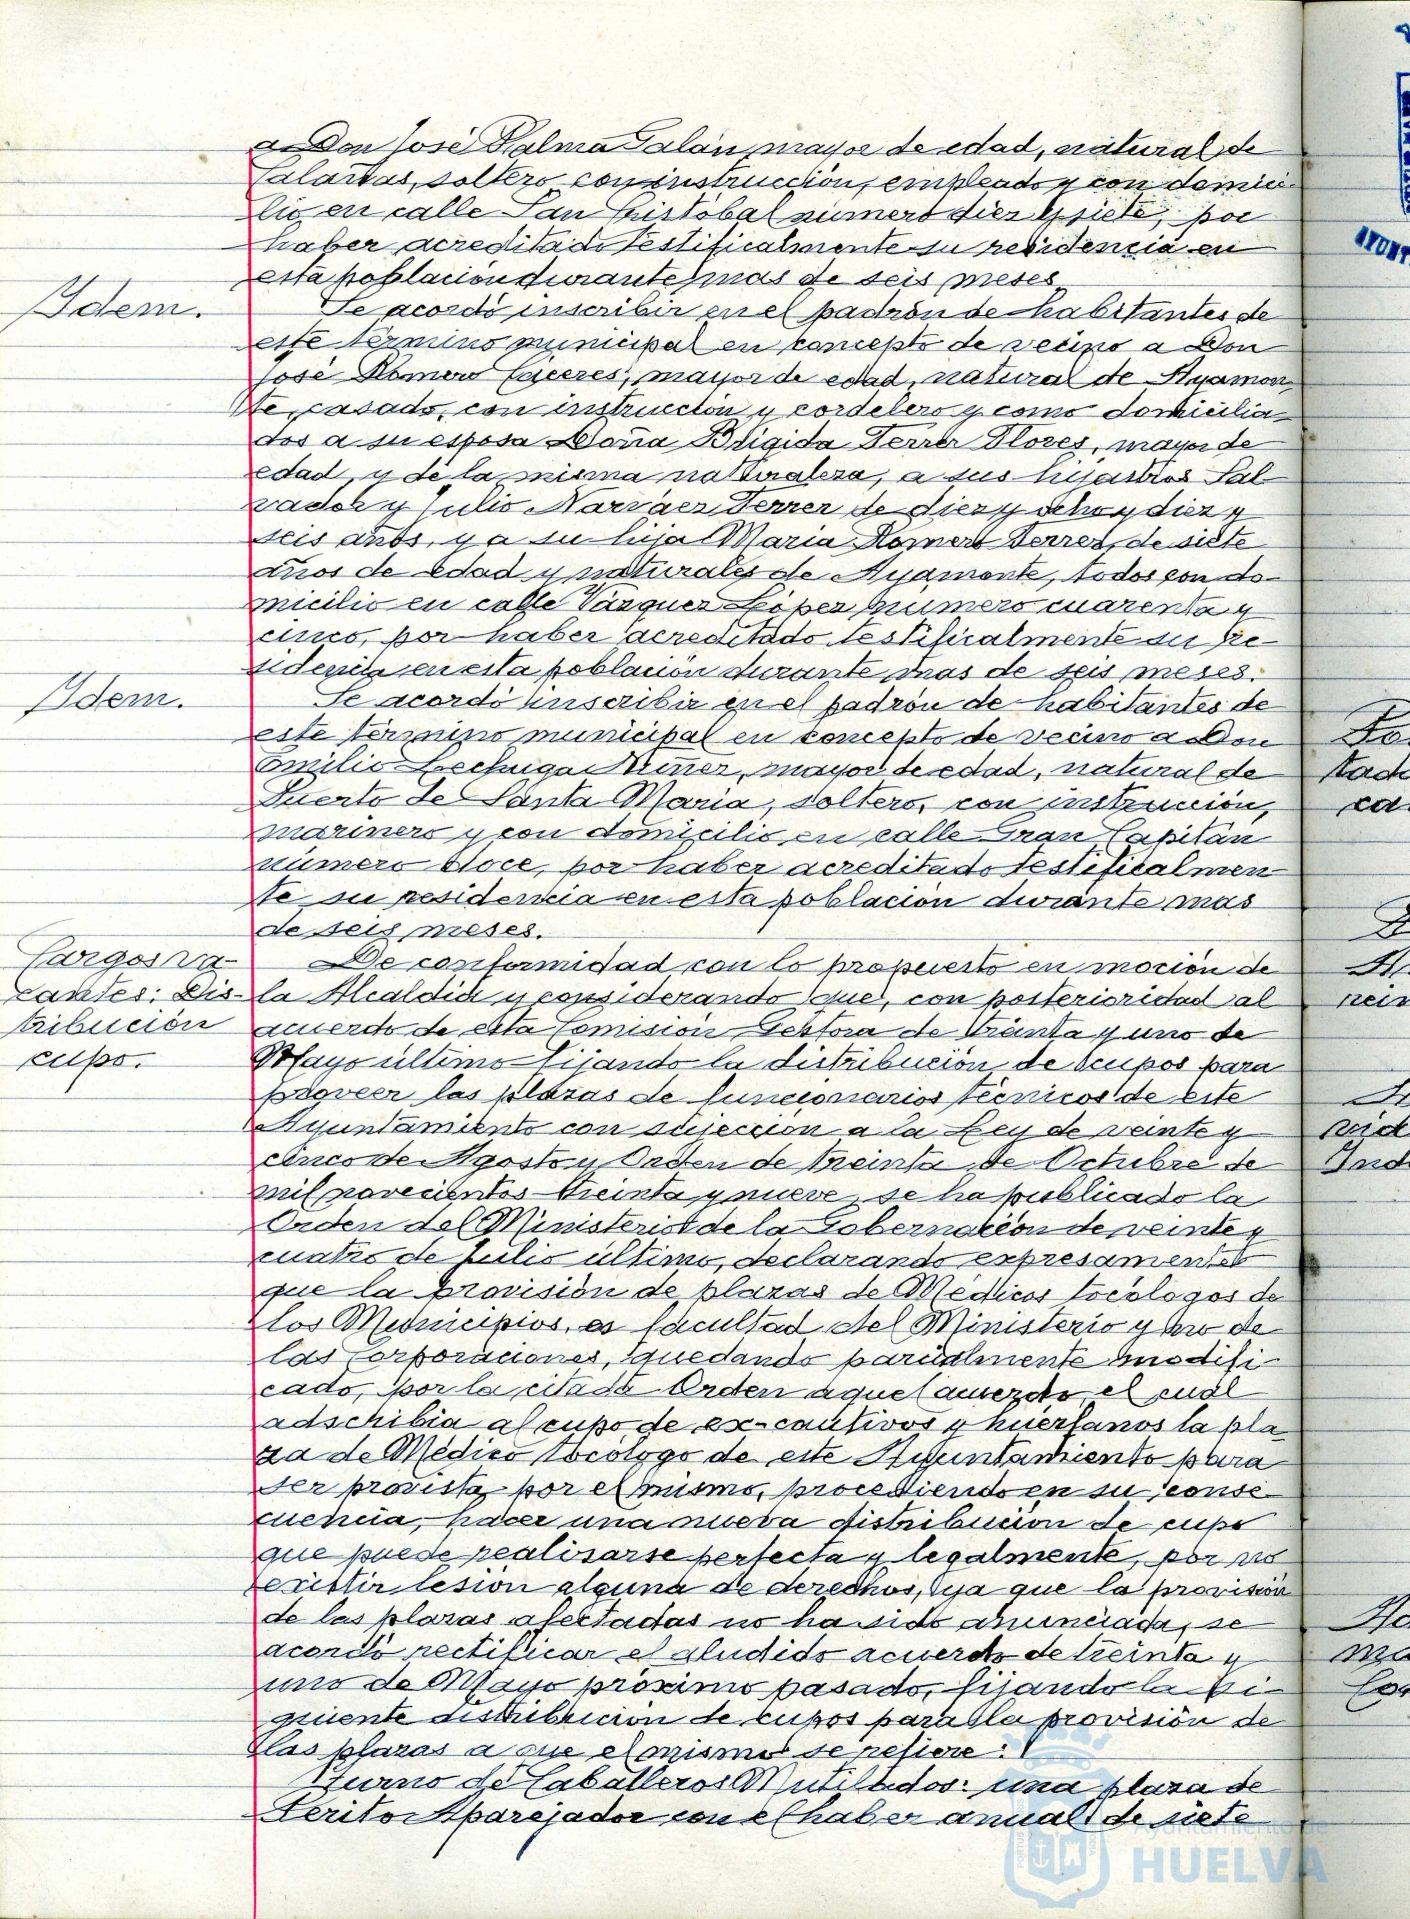 a Don José Palma Galán, mayor de edad, natural de
soltero, con instrucción, empleado y con domici-
lio en calle San Cristóbal número diez y siete, por
haber acreditado testificalmente su residencia en
esta población durante mas de seis meses.
Idem.
Se acordó inscribir en el padrón de habitantes de
este término municipal en concepto de vecino a Don
José Romero Cáceres, mayor de edad, natural de Ayamon-
te, casado, con instrucción y cordelero y como domicilia-
dos a su esposa Doña Brigida Ferrer Flores, mayor de
edad, y de la misma naturaleza, a sus hijastros Sal-
vador y Julio Narváez Ferrer de diez y ocho y diez y
seis años, y a su hija Maria Romero Ferrer, de siete
años de edad y naturales de Ayamonte, todos con do-
micilio en calle Vázquez López número cuarenta y
cinco, por haber acreditado testificalmente su re-
sidencia en esta población durante mas de seis meses.
Idem.
Se acordó inscribir en el padrón de habitantes de
este término municipal en concepto de vecino a Don
Emilio Lechuga mayor de edad, natural de
Puerto de Santa Maria, soltero, con instrucción,
marinero y con domicilio en calle Gran Capitán
número doce, por haber acreditado testificalmen-
te su residencia en esta población durante mas
de seis meses.
Cargos va-
cantes: Dis-
tribución
cupo.
De conformidad con lo propuesto en moción de
la Alcaldia y considerando que, con posterioridad al
acuerdo de esta Comisión Gestora de treinta y uno de
Mayo último fijando la distribución de cupos para
proveer las plazas de funcionarios técnicos de este
Ayuntamiento con sujeción a la Ley de veinte y
cinco de Agosto y Orden de treinta de Octubre de
mil novecientos treinta y nueve, se ha publicado la
Orden del Ministerio de la Gobernación de veinte y
cuatro de Julio último, declarando expresamente
que la provisión de plazas de Médicos tocólogos de
los Municipios, es facultad del Ministerio y no de
las Corporaciones, quedando parcialmente modifi-
cado, por la citada Orden aquel acuerdo, el cual
adscribia al cupo de ex-cautivos y huerfanos la pla-
za de Médico tocólogo de este Ayuntamiento para
ser provista por el mismo, procediendo en su conse-
cuencia, hacer una nueva distribución de cupo
que puede realizarse perfecta y legalmente, por no
existir lesión alguna de derechos, ya que la provisión
de las plazas afectadas no ha sido anunciada, se
acordó rectificar el aludido acuerdo de treinta y
uno de Mayo próximo pasado, fijando la si-
guiente distribución de cupos para la provisión de
las plazas a que el mismo se refiere:
Turno de Caballeros Mutilados: una plaza de
Perito Aparejador con el haber anual de siete
Ayuntamiento de
HUELVA